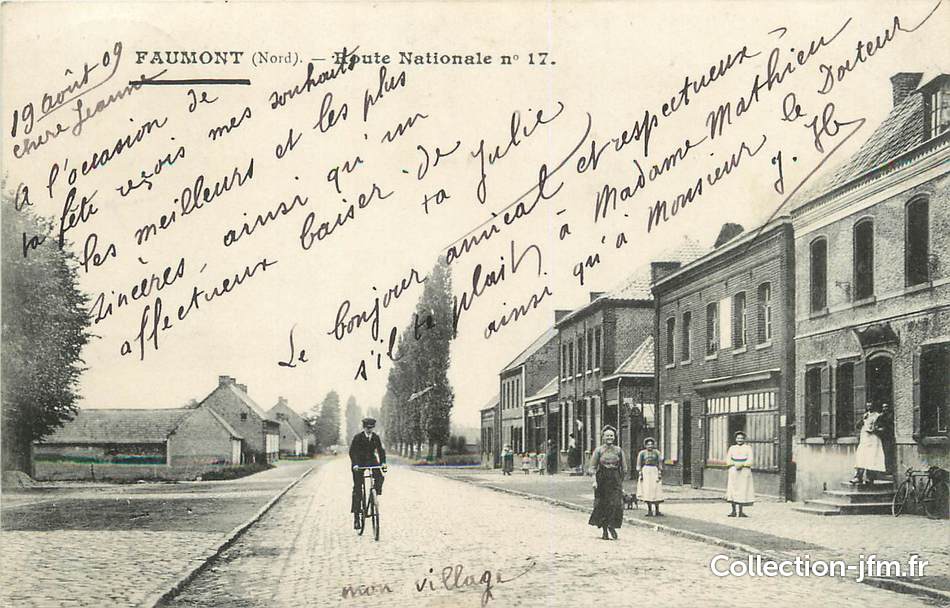 FAUMONT (Nord). — Route Nationale nº 17.
19 Août 09
chère Jeanne
A l'occasion de
ta fête reçois mes souhaits
les meilleurs et les plus
sincères, ainsi qu'un
affectueux baiser de
ta Julie
Le bonjour amical et respectueux
s'il te plaît à Madame Mathieu
ainsi qu'à Monsieur le Docteur
mon village
Collection-jfm.fr